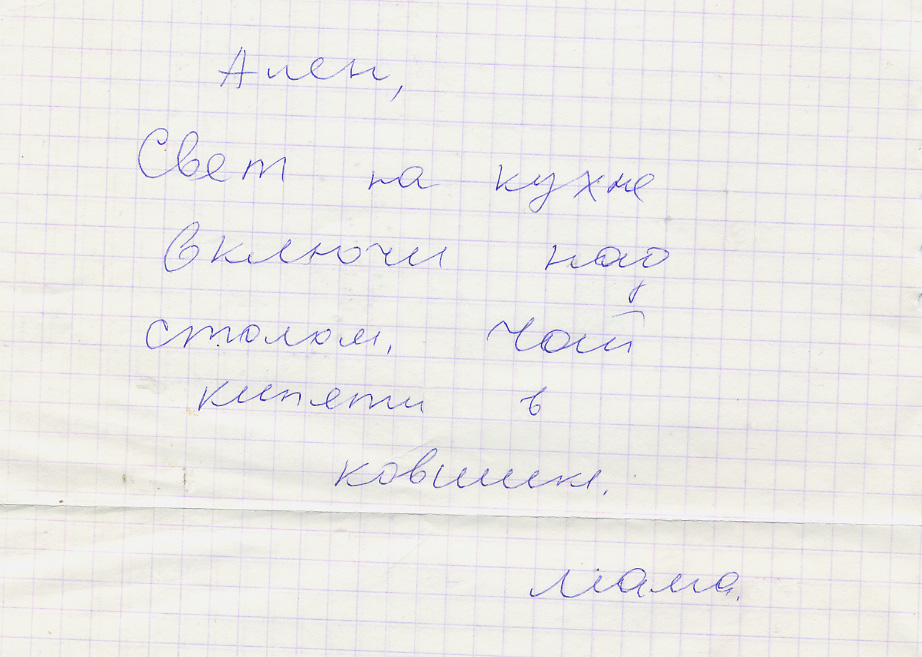 Ален,
Свет на кухне
включи над
столом. Чай
кипяти в
ковшике.
Мама.